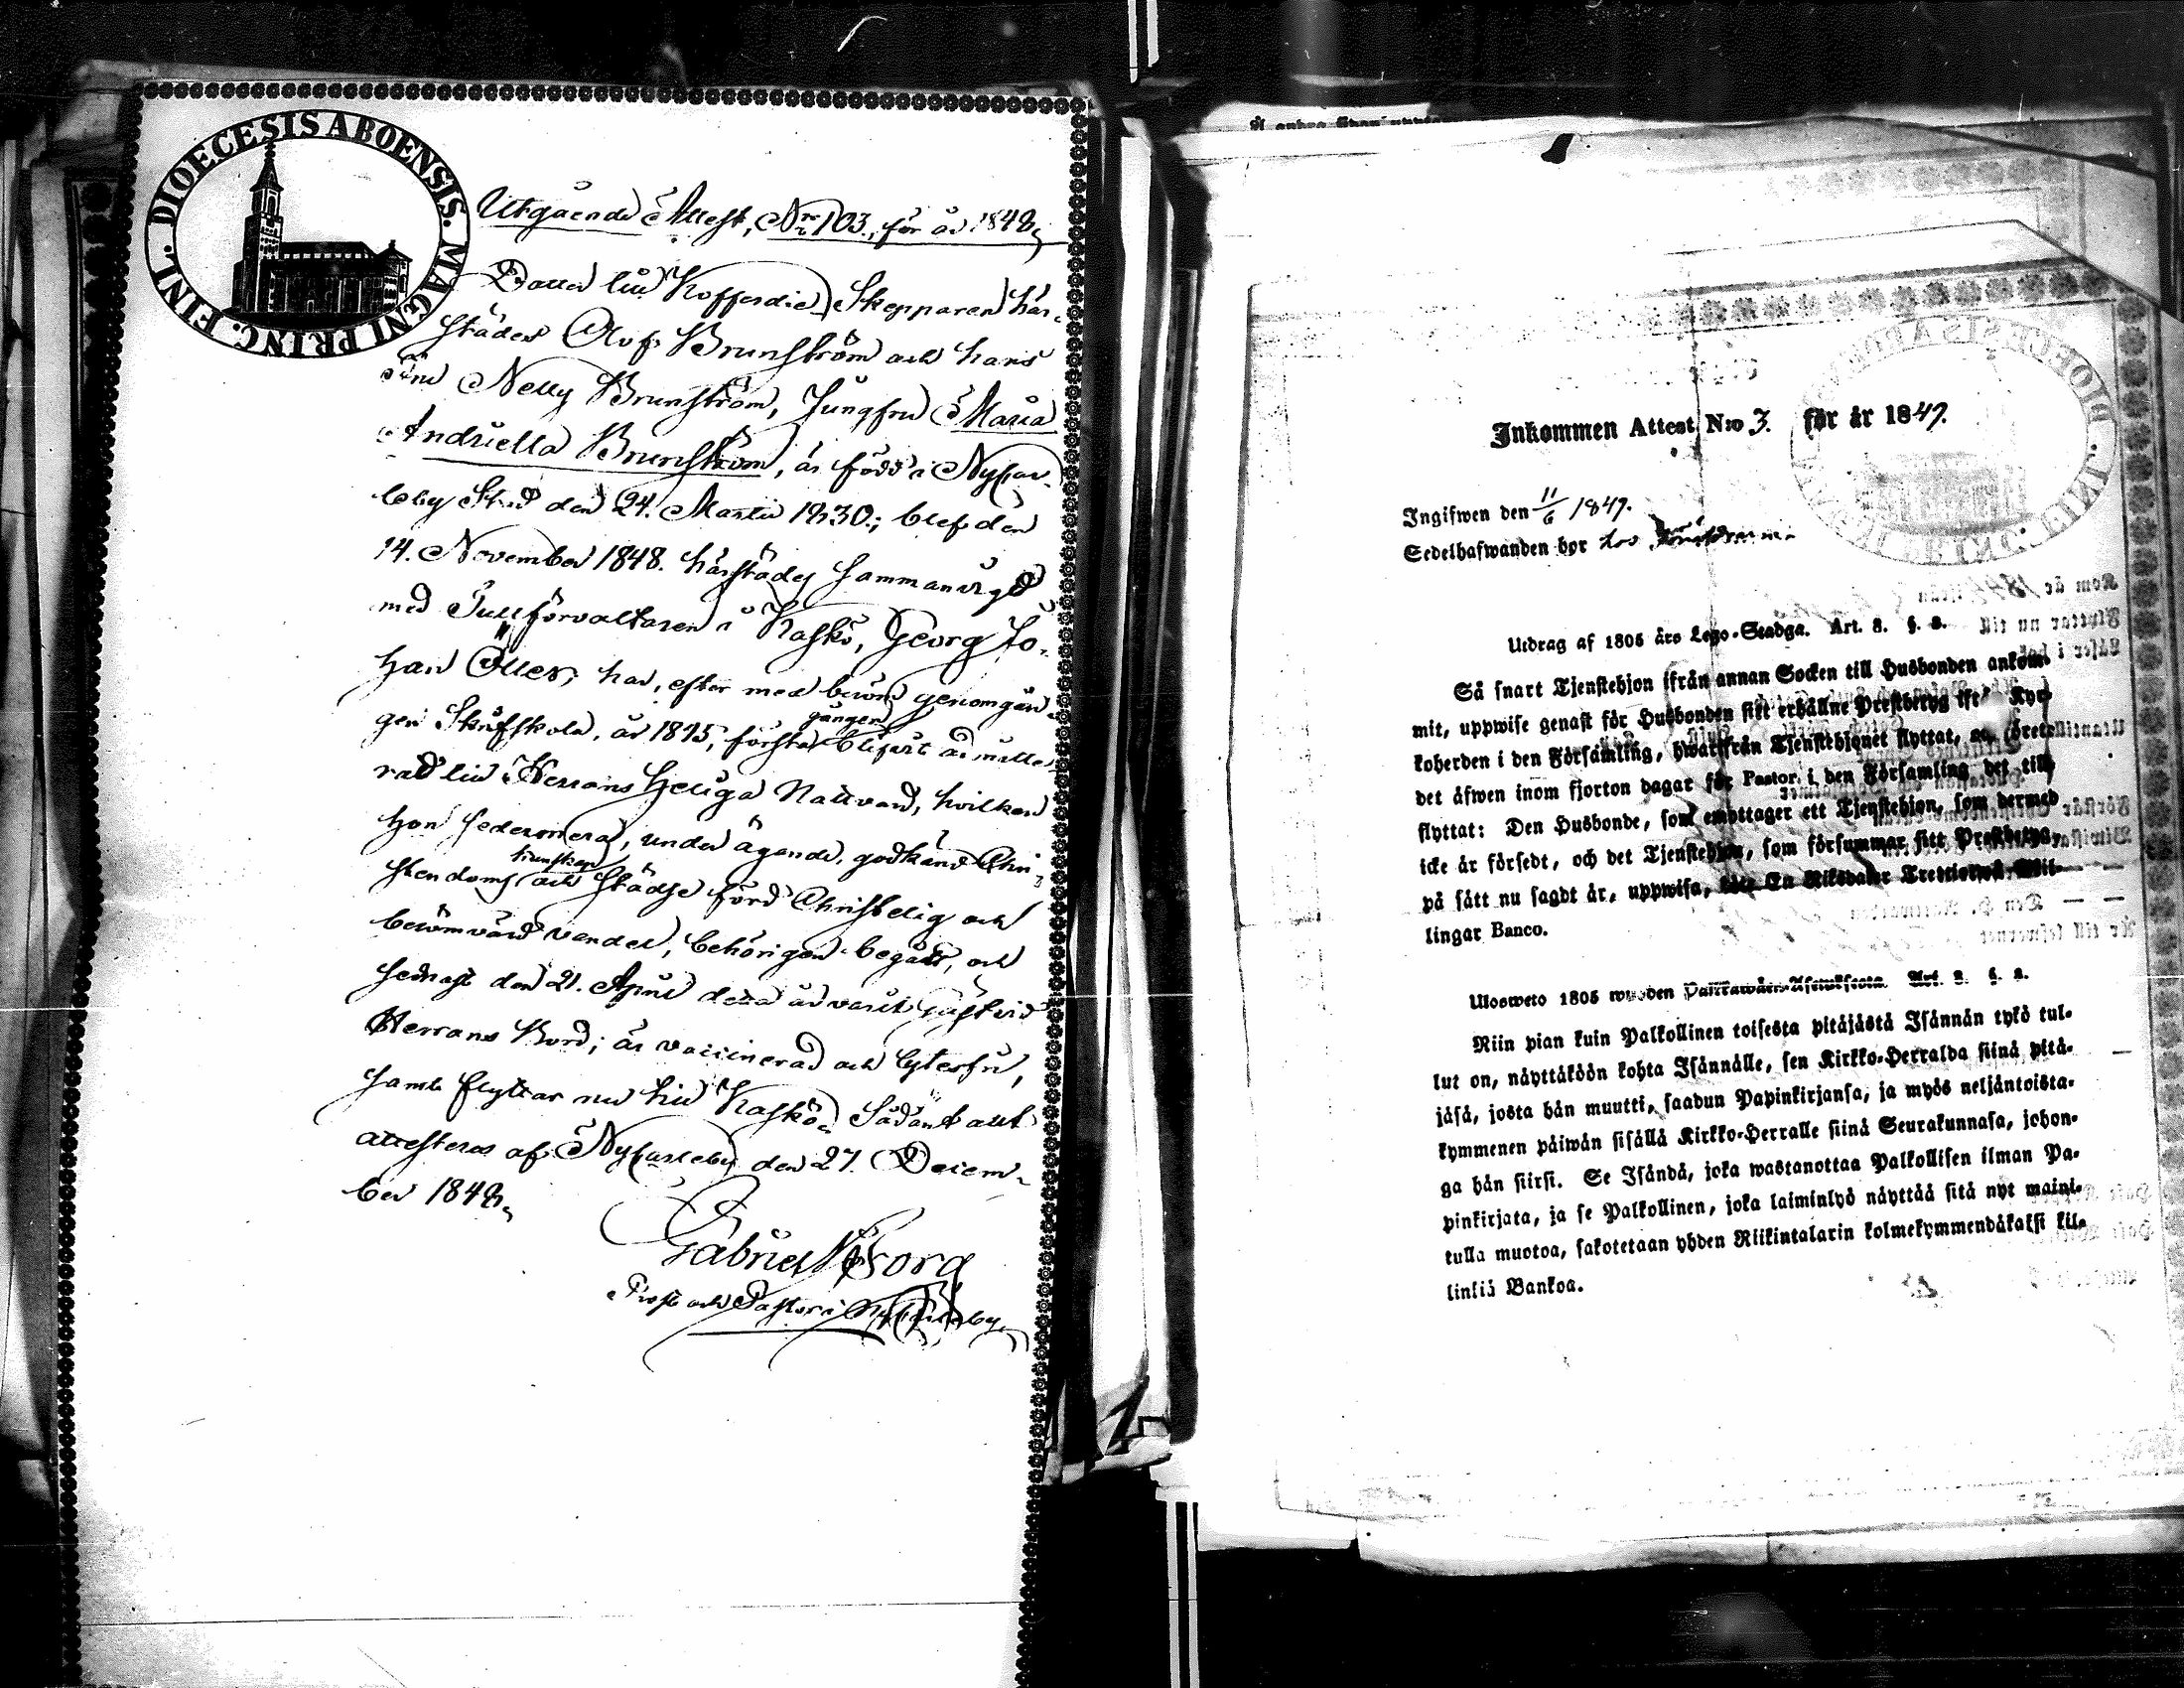 DIOECESIS ABOENSIS. MAGNI PRINC. FINL.
Utgående Attest, Nro 103., för år 1848.
Dotter till Kofferdie Skepparen här-
städes Olof Brunström och hans
Nelly Brunström, Jungfru Maria
Andrietta Brunström, är född i Nycar-
leby Stad den 24. Martii 1830.; blef den
14. November 1848. härstädes sammanvigd
med Tullförvaltaren i Kaskö, Georg Jo-
han Öller, har, efter med beröm genomgån-
gen Skriftskola, år 1845, första gången blifvit admitte-
rad till Herrans Heliga Nattvard, hvilken
hon sedermera, under ägande, godkänd Chri-
stendoms kunskap och städse förd Christelig och
berömvärd vandel, behörigen begått, och
sednast den 21. April detta år varit gäst vid
Herrans Bord; är vaccinerad och lytesfri,
samt flyttar nu till Kaskö. Sådant allt
attesteras af Nycarleby den 27. Decem-
ber 1848.
Gabriel Borg
Prost och Pastor i Nycarleby.
Inkommen Attest N:o 3. för år 1849.
Ingifwen den 11/6 1849.
Sedelhafwanden bor hos
Utdrag af 1805 års Lego-Stadga. Art. 8. §. 8.
Så snart Tjenstehjon ifrån annan Socken till Husbonden ankom-
mit, uppwise genast för Husbonden sitt erhållne Prestbetyg ifr Kyr-
koherden i den Församling, hwarifrån Tjenstehjonet flyttat, förete
det äfwen inom fjorton dagar för Pastor i den Församling det till
flyttat: Den Husbonde, som emottager ett Tjenstehjon, som dermed
icke är försedt, och det Tjenstehjon, som försummar sitt Prestbetyg,
på sätt nu sagdt är, uppwisa, böte En Riksdaler Trettiotwå Skil-
lingar Banco.
Ulosweto 1805 wuoden Palkkawäen-Asetuksesta. Art. 8. §. 8.
Niin pian kuin Palkollinen toisesta pitäjästä Isännän tykö tul-
lut on, näyttäköön kohta Isännälle, sen Kirkko-Herralda siinä pitä-
jäsä, josta hän muutti, saadun Papinkirjansa, ja myös neljäntoista-
kymmenen päiwän sisällä Kirkko-Herralle siinä Seurakunnasa, johon-
ga hän siirsi. Se Isändä, joka wastanottaa Palkollisen ilman Pa-
pinkirjata, ja se Palkollinen, joka laiminlyö näyttää sitä nyt maini-
tulla muotoa, sakotetaan yhden Riikintalarin kolmekymmendäkaksi kil-
linkiä Bankoa.